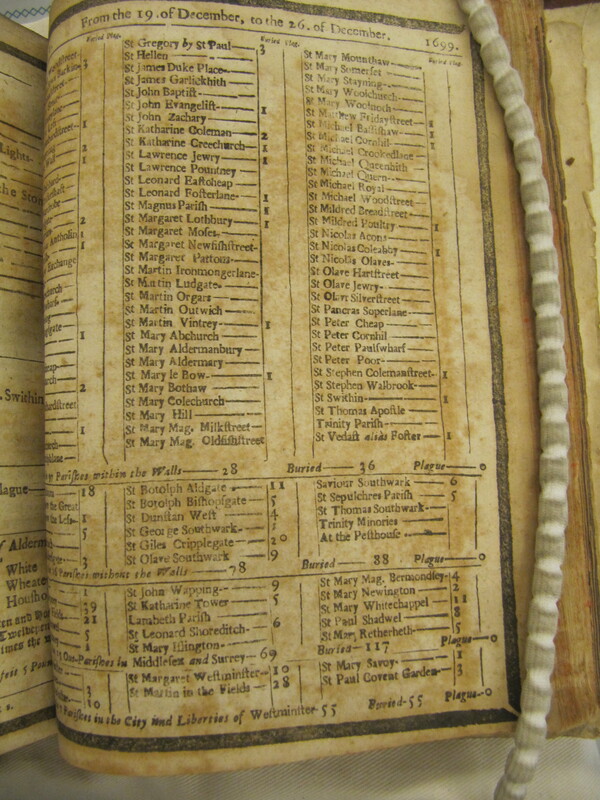 From the 19. of December, to the 26. of December. 1699.
Buried Plag.
Buried Plag.
Buried Plag.
St Gregory by St Paul 3
St Hellen
St James Duke Place
St James Garlickhith
St John Baptiſt
St John Evangeliſt 1
St John Zachary
St Katharine Coleman 2
St Katharine Creechurch 1
St Lawrence Jewry 1
St Lawrence Pountney
St Leonard Eaſtcheap
St Leonard Foſterlane 1
St Magnus Pariſh 1
St Margaret Lothbury 1
St Margaret Moſes
St Margaret Newfiſhſtreet
St Margaret Pattons
St Martin Ironmongerlane
St Martin Ludgate
St Martin Orgars
St Martin Outwich
St Martin Vintrey 1
St Mary Abchurch
St Mary Aldermanbury
St Mary Aldermary
St Mary le Bow 1
St Mary Bothaw
St Mary Colechurch
St Mary Hill
St Mary Mag. Milkſtreet
St Mary Mag. Oldfiſhſtreet
St Mary Mounthaw
St Mary Somerſet
St Mary Stayning
St Mary Woolchurch
St Mary Woolnoth
St Matthew Fridayſtreet 1
St Michael Baſſiſhaw 1
St Michael Cornhil 1
St Michael Crookedlane
St Michael Queenhith
St Michael Quern
St Michael Royal
St Michael Woodſtreet 1
St Mildred Breadſtreet 1
St Mildred Poultry
St Nicolas Acons
St Nicolas Coleabby 1
St Nicolas Olaves
St Olave Hartſtreet
St Olave Jewry
St Olave Silverſtreet
St Pancras Soperlane
St Peter Cheap
St Peter Cornhil
St Peter Paulſwharf
St Peter Poor
St Stephen Colemanſtreet 1
St Stephen Walbrook
St Swithin 1
St Thomas Apoſtle
Trinity Pariſh
St Vedaſt alias Foſter 1
Pariſhes within the Walls 28 Buried 36 Plague 0
St Botolph Aldgate 11
St Botolph Biſhopſgate 5
St Dunſtan Weſt 4
St George Southwark 3
St Giles Cripplegate 20
St Olave Southwark 9
Saviour Southwark 6
St Sepulchres Pariſh 5
St Thomas Southwark
Trinity Minories
At the Peſthouſe
Pariſhes without the Walls 78 Buried 88 Plague 0
St John Wapping 9
St Katharine Tower 5
Lambeth Pariſh
St Leonard Shoreditch 6
St Mary Iſlington
St Mary Mag. Bermondſey 4
St Mary Newington 2
St Mary Whitechappel 11
St Paul Shadwel 8
St Mary Retherheth 5
Out-Pariſhes in Middleſex and Surrey 69 Buried 117 Plague 0
St Margaret Weſtminſter 10
St Martin in the Fields 28
St Mary Savoy 1
St Paul Covent Garden 3
Pariſhes in the City and Liberties of Weſtminſter 55 Buried 55 Plague 0